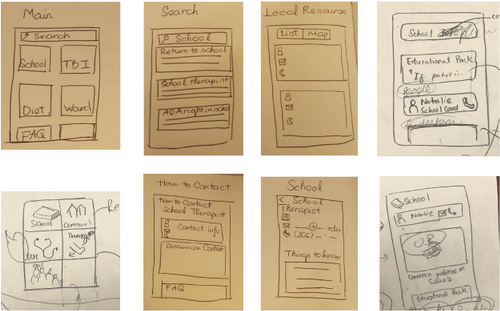 Main
Search
School
TBI
Diet
Ward
FAQ
Search
School
Return to school
School Therapist
ADA right in school
Local Resource
List
Map
School
Educational Pack
"If
People
Natalie
School Card
School
Contact
How to Contact
How to Contact
School Therapist
Contact info
Discussion Content
FAQ
School
< School
Therapist
@ .edu
Things to know
School
Natalie
Common problems at
Educational Pack